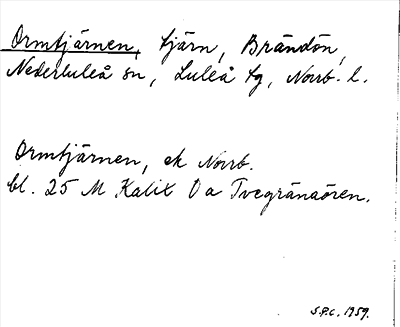 Ormtjärnen, tjärn, Brändön,
Nederluleå sn, Luleå tg, Norrb. l.
Ormtjärnen, ek Norrb.
bl. 25 M Kalix Oa Tvegränaören.
S.P.C. 1959.